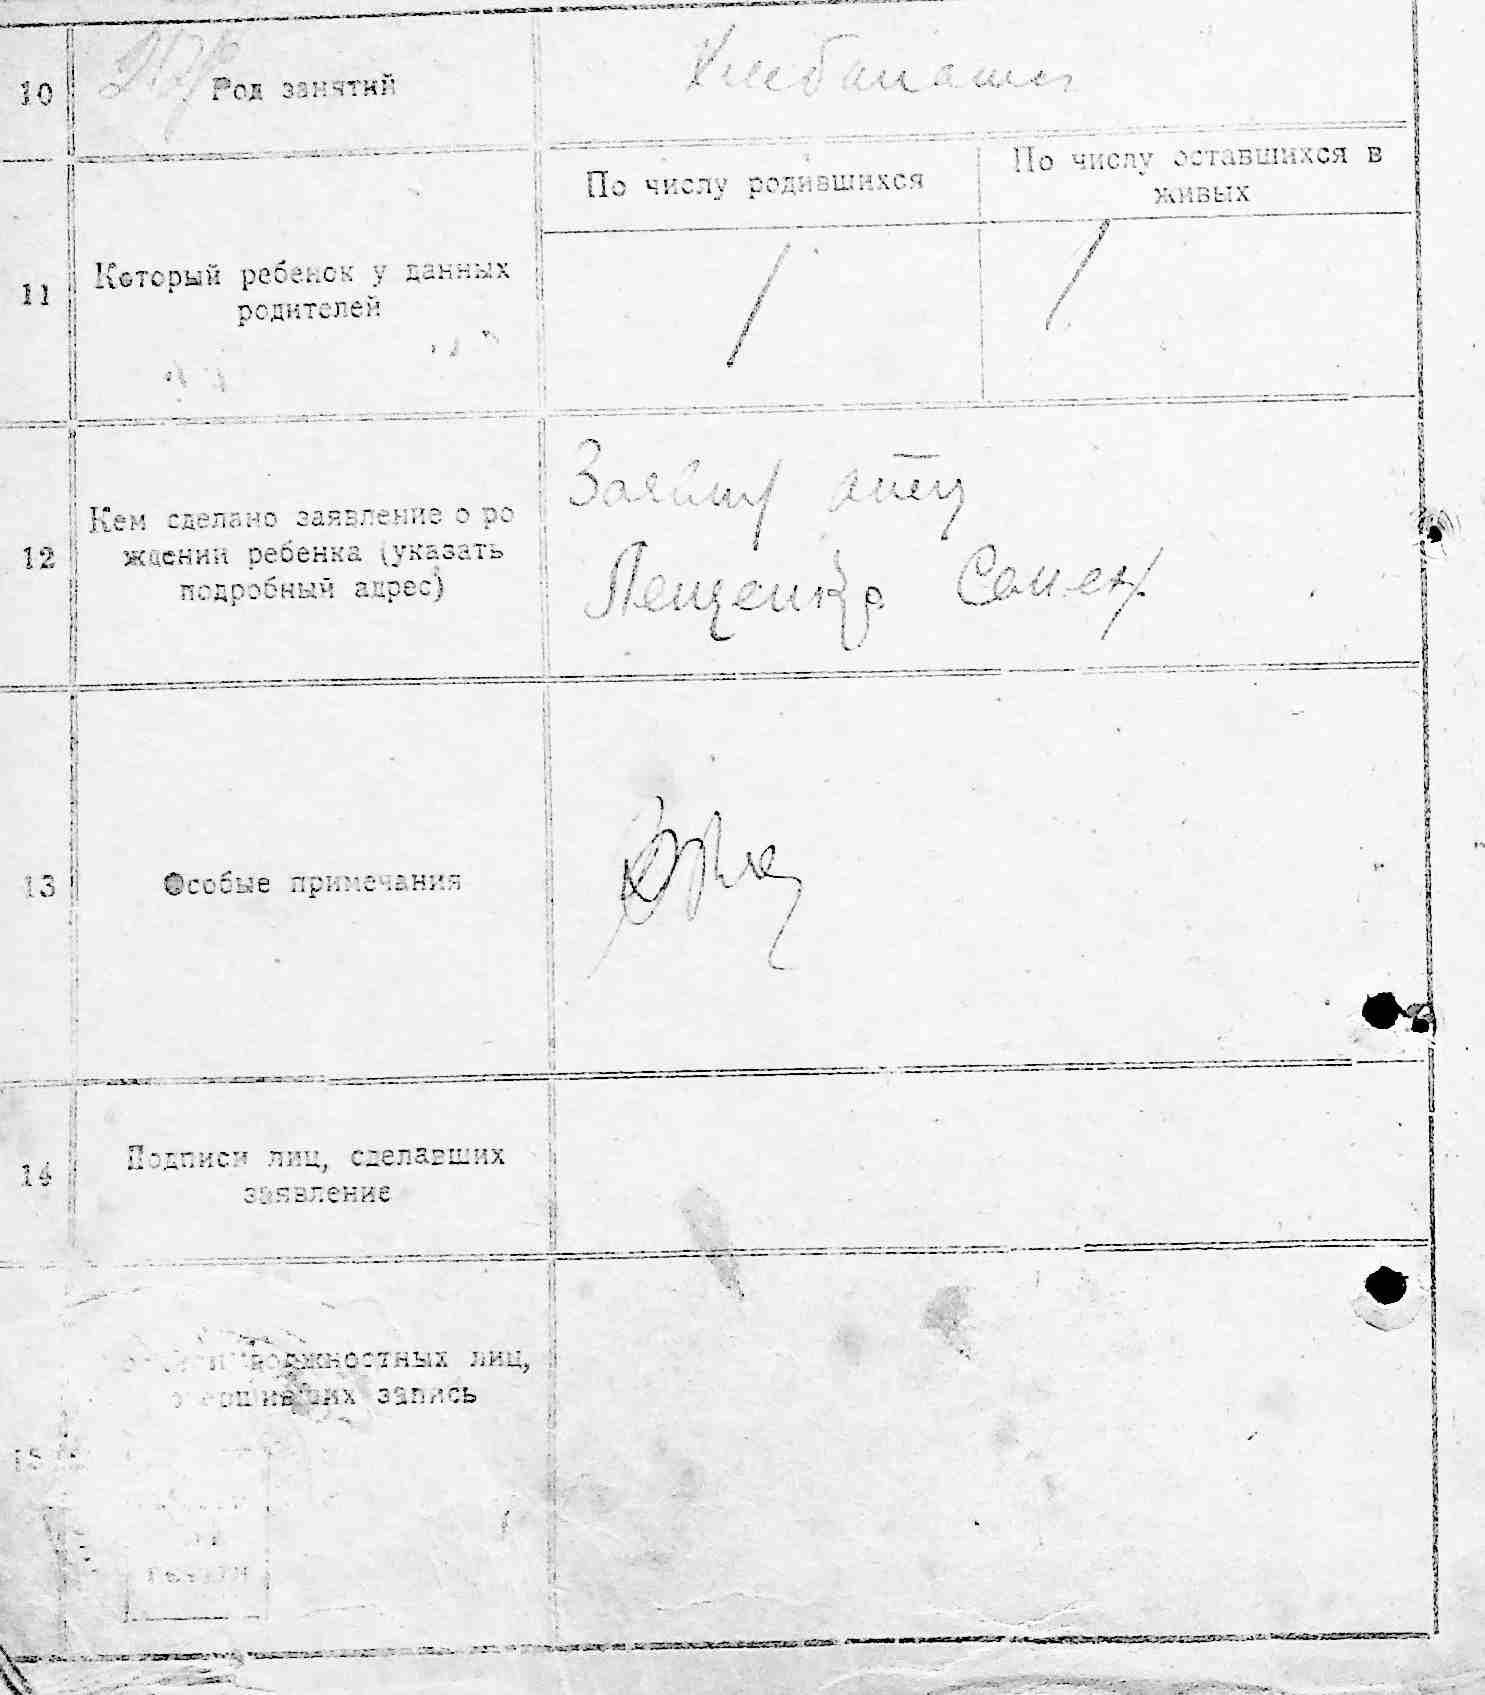 10
Род занятий
Хлебопашц
По числу родившихся
По числу оставшихся в
живых
11
Который ребенок у данных
родителей
1
1
12
Кем сделано заявление о ро
ждении ребенка (указать
подробный адрес)
Заявил отец
Лещенко Семен
13
Особые примечания
14
Подписи лиц, сделавших
заявление
15
должностных лиц,
запись